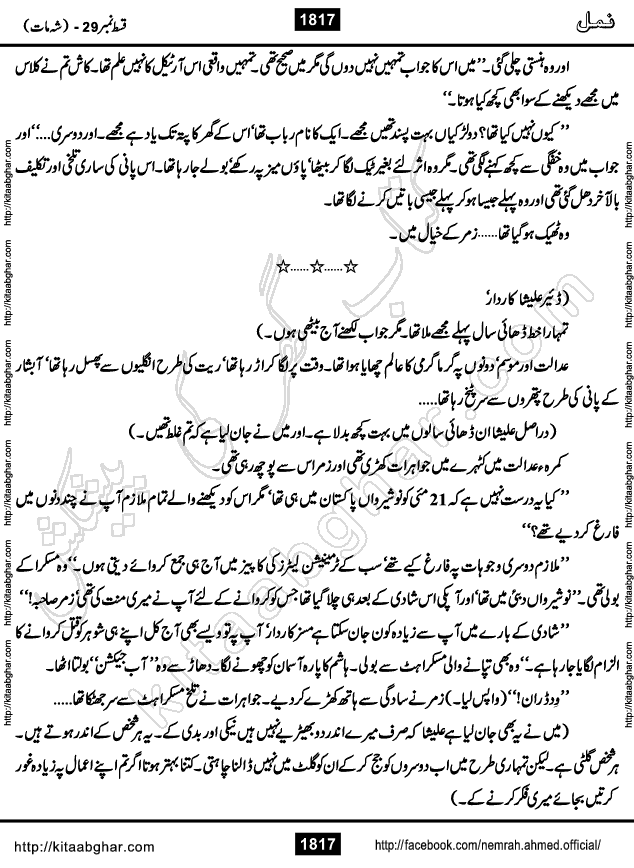 نمل 1817 قسط نمبر 29 - (شہ مات)
اور وہ ہنستی چلی گئی۔ ”میں اس کا جواب تمہیں نہیں دوں گی مگر میں صحیح تھی۔ تمہیں واقعی اس آرٹیکل کا نہیں علم تھا۔ کاش تم نے کلاس
میں مجھے دیکھنے کے سوا بھی کچھ کیا ہوتا۔“
”کیوں نہیں کیا تھا؟ دو لڑکیاں بہت پسند تھیں مجھے۔ ایک کا نام رباب تھا‘ اس کے گھر کا پتہ تک یاد ہے مجھے۔ اور دوسری....“ اور
جواب میں وہ خفگی سے کچھ کہنے لگی تھی۔ مگر وہ اثر لئے بغیر ٹیک لگا کر بیٹھا‘ پاؤں میز پہ رکھے‘ بولے جا رہا تھا۔ اس پانی کی ساری تلخی اور تکلیف
بالآخر دھل گئی تھی اور وہ پہلے جیسا ہو کر پہلے جیسی باتیں کرنے لگا تھا۔
وہ ٹھیک ہو گیا تھا...... زمر کے خیال میں۔
☆......☆......☆
(ڈئیر علیشا کاردار‘
تمہارا خط ڈھائی سال پہلے مجھے ملا تھا۔ مگر جواب لکھنے آج بیٹھی ہوں۔)
عدالت اور موسم‘ دونوں پہ گرما گرمی کا عالم چھایا ہوا تھا۔ وقت پر لگا کر اڑ رہا تھا‘ ریت کی طرح انگلیوں سے پھسل رہا تھا‘ آبشار
کے پانی کی طرح پتھروں سے سر پٹخ رہا تھا.....
(دراصل علیشا ان ڈھائی سالوں میں بہت کچھ بدلا ہے۔ اور میں نے جان لیا ہے کہ تم غلط تھیں۔)
کمرہء عدالت میں کٹہرے میں جواہرات کھڑی تھی اور زمر اس سے پوچھ رہی تھی۔
”کیا یہ درست نہیں ہے کہ 21 مئی کو نوشیرواں پاکستان میں ہی تھا‘ مگر اس کو دیکھنے والے تمام ملازم آپ نے چند دنوں میں
فارغ کر دیے تھے؟“
”ملازم دوسری وجوہات پہ فارغ کیے تھے‘ سب کے ٹرمینیشن لیٹرز کی کاپیز میں آج ہی جمع کروائے دیتی ہوں۔“ وہ مسکرا کے
بولی تھی۔ ”نوشیرواں دبئی میں تھا‘ اور آپکی اس شادی کے بعد ہی چلا گیا تھا جس کو کروانے کے لئے آپ نے میری منت کی تھی‘ زمر صاحبہ!“
”شادی کے بارے میں آپ سے زیادہ کون جان سکتا ہے مسز کاردار‘ آپ پہ تو ویسے بھی آج کل اپنے ہی شوہر کو قتل کروانے کا
الزام لگایا جا رہا ہے۔“ وہ بھی تپانے والی مسکراہٹ سے بولی۔ ہاشم کا پارہ آسمان کو چھونے لگا۔ دھاڑ سے وہ ”آب جیکشن“ بولتا اٹھا۔
”ود ڈران!“ (واپس لیا۔) زمر نے سادگی سے ہاتھ کھڑے کر دیے۔ جواہرات نے تلخ مسکراہٹ سے سر جھٹکا تھا.....
(میں نے یہ بھی جان لیا ہے علیشا کہ صرف میرے اندر دو بھیڑیے نہیں ہیں نیکی اور بدی کے۔ یہ ہر شخص کے اندر ہوتے ہیں۔
ہر شخص گلٹی ہے۔ لیکن تمہاری طرح میں اب دوسروں کو جج کر کے ان کو گلٹ میں نہیں ڈالنا چاہتی۔ کتنا بہتر ہوتا اگر تم اپنے اعمال پہ زیادہ غور
کرتیں بجائے میری فکر کرنے کے۔)
http://kitaabghar.com 1817 http://facebook.com/nemrah.ahmed.official/
http://kitaabghar.com http://kitaabghar.com http://kitaabghar.com http://kitaabghar.com http://kitaabghar.com http://kitaabghar.com
http://kitaabghar.com http://kitaabghar.com http://kitaabghar.com http://kitaabghar.com http://kitaabghar.com http://kitaabghar.com
کتاب گھر کی پیشکش
kitaabghar.com